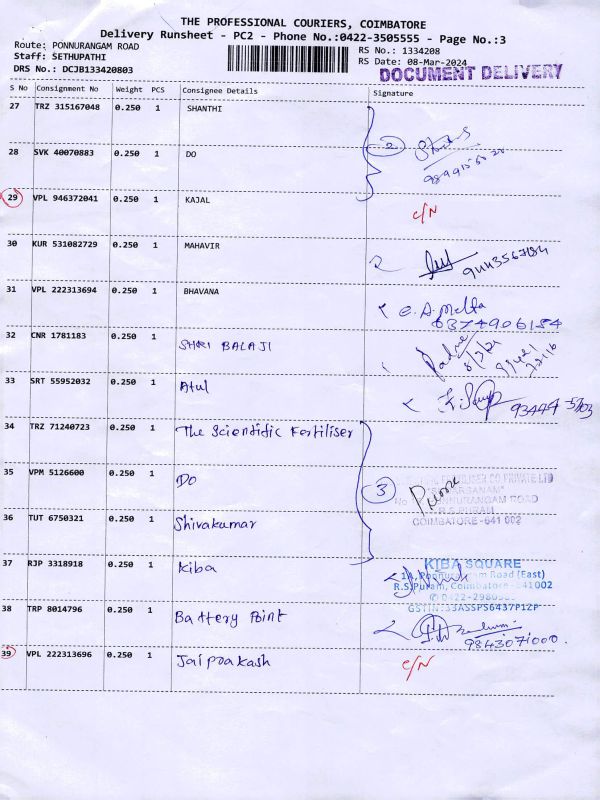 THE PROFESSIONAL COURIERS, COIMBATORE
Delivery Runsheet - PC2 - Phone No.:0422-3505555 - Page No.:3
Route: PONNURANGAM ROAD
RS No.: 1334208
Staff: SETHUPATHI
RS Date: 08-Mar-2024
DRS No.: DCJB133420803
DOCUMENT DELIVERY
S No Consignment No Weight PCS Consignee Details Signature
27 TRZ 315167048 0.250 1 SHANTHI
2
28 SVK 40070883 0.250 1 DO
29 VPL 946372041 0.250 1 KAJAL C/N
30 KUR 531082729 0.250 1 MAHAVIR
31 VPL 222313694 0.250 1 BHAVANA
6374906154
32 CNR 1781183 0.250 1 SHRI BALAJI
33 SRT 55952032 0.250 1 Atul
34 TRZ 71240723 0.250 1 The Scientific Fertiliser
35 VPM 5126600 0.250 1 DO 3
36 TUT 6750321 0.250 1 Shivakumar
COIMBATORE-641 002
37 RJP 3318918 0.250 1 Kiba
KIBA SQUARE
R.S.Puram, Coimbatore - 641002
GSTIN:33ASSPS6437P1ZP
38 TRP 8014796 0.250 1 Battery Point
9843071000.
39 VPL 222313696 0.250 1 Jai prakash C/N